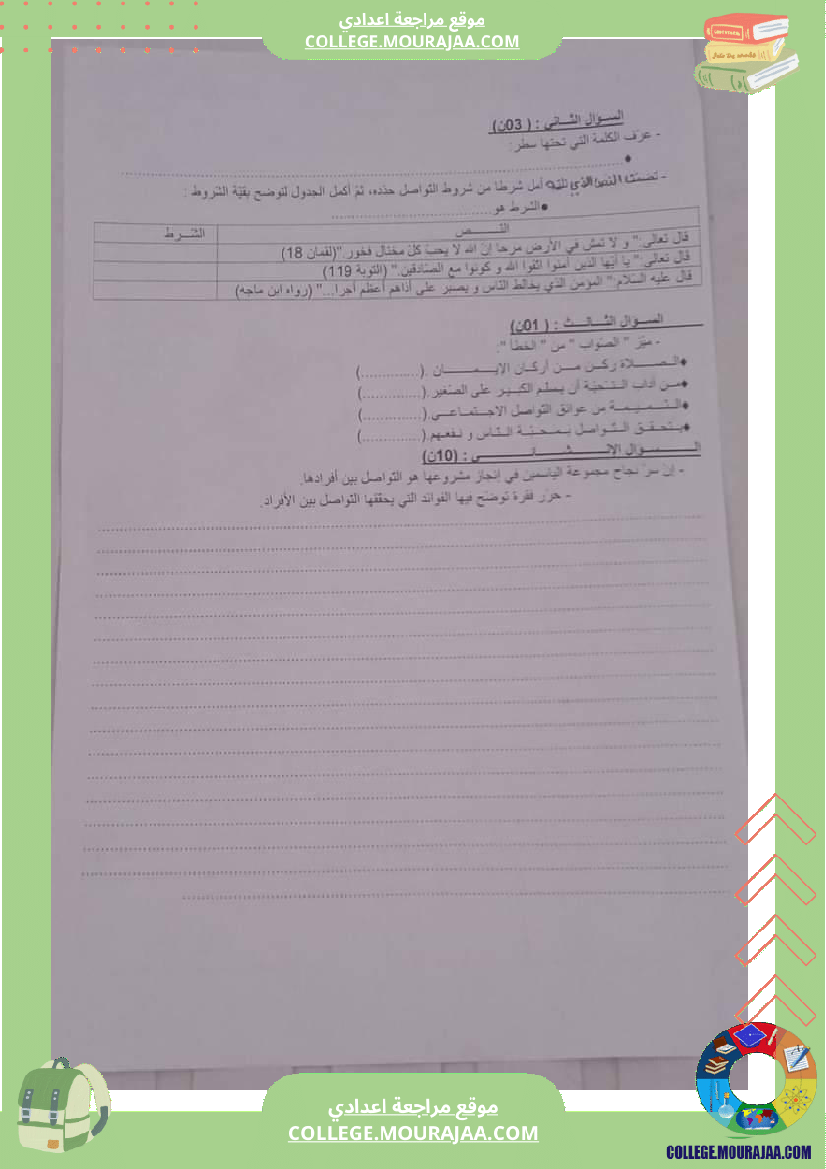 موقع مراجعة اعدادي
COLLEGE.MOURAJAA.COM
السـؤال الثـــاني : ( 03ن)
- عرّف الكلمة التي تحتها سطر:
♦............................................................
- تضمنت أمل شرطا من شروط التواصل حدده، ثمّ أكمل الجدول لتوضح بقيّة الشروط :
●الشرط هو.......................................
النـــــــص الشـــرط
قال تعالى:" و لا تمش في الأرض مرحا إنّ الله لا يحبّ كلّ مختال فخور."(لقمان 18)
قال تعالى:" يا أيّها الذين آمنوا اتّقوا الله و كونوا مع الصّادقين." (التوبة 119)
قال عليه السّلام:" المؤمن الذي يخالط النّاس و يصبر على أذاهم أعظم أجرا..." (رواه ابن ماجه)
الســـؤال الثـــالـــث : ( 01ن)
- ميّز " الصّواب " من " الخطأ ":
♦الـصـــــلاة ركـــن مـــن أركـــان الإيـــمـــــان .(..............)
♦مــن آداب الـتـحـيّة أن يسلّم الكبـيـر على الصّغير.(..............)
♦الـنّـــمـيـمــة من عوائق التواصل الاجـتـمـاعــي.(..............)
♦يـتـحـقـق الـتّـواصل بـمـحـبّـة الـنّـاس و نـفـعـهم.(..............)
الـــــســؤال الإنـــــشــــائـــــــي : (10ن)
- إنّ سرّ نجاح مجموعة الياسمين في إنجاز مشروعها هو التواصل بين أفرادها.
- حرّر فقرة توضّح فيها الفوائد التي يحقّقها التواصل بين الأفراد.
موقع مراجعة اعدادي
COLLEGE.MOURAJAA.COM
COLLEGE.MOURAJAA.COM